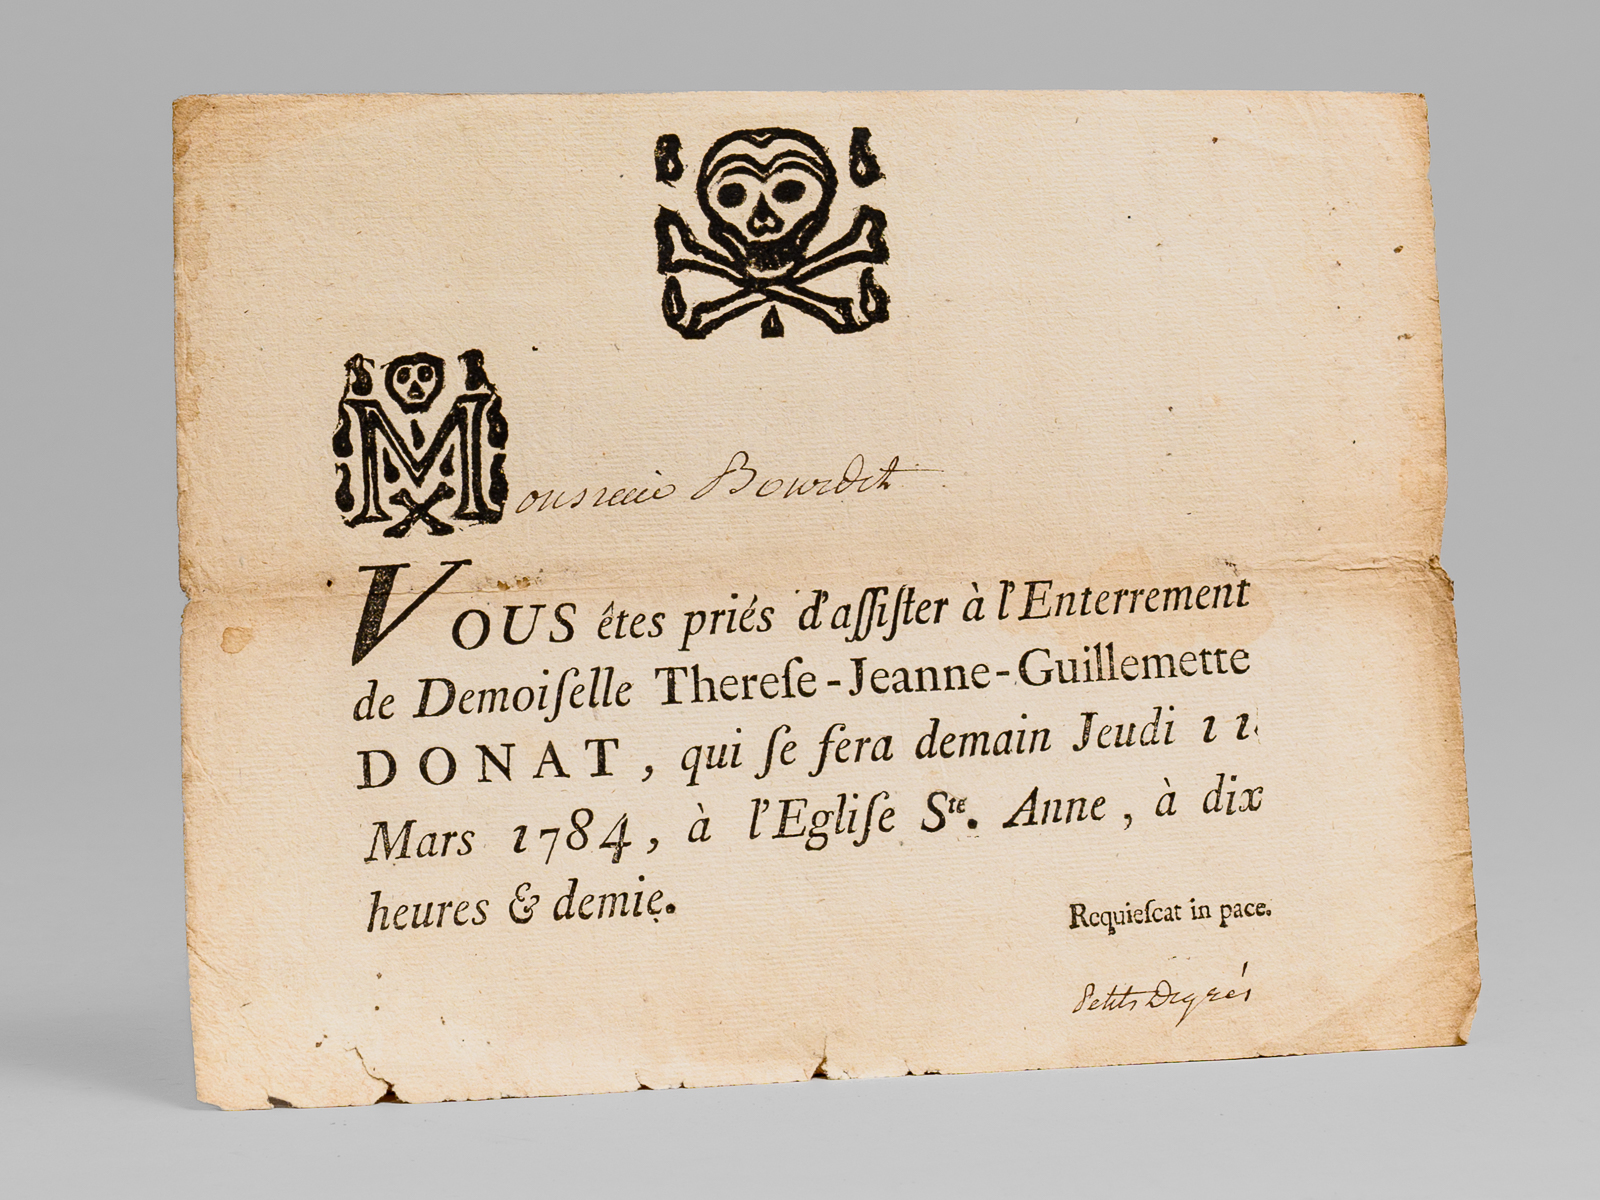 Monsieur Bourdet
VOUS êtes priés d'aſſiſter à l'Enterrement
de Demoiſelle Thereſe-Jeanne-Guillemette
DONAT, qui ſe fera demain Jeudi 11.
Mars 1784, à l'Egliſe Ste. Anne, à dix
heures & demie.
Requieſcat in pace.
Petits Degrés